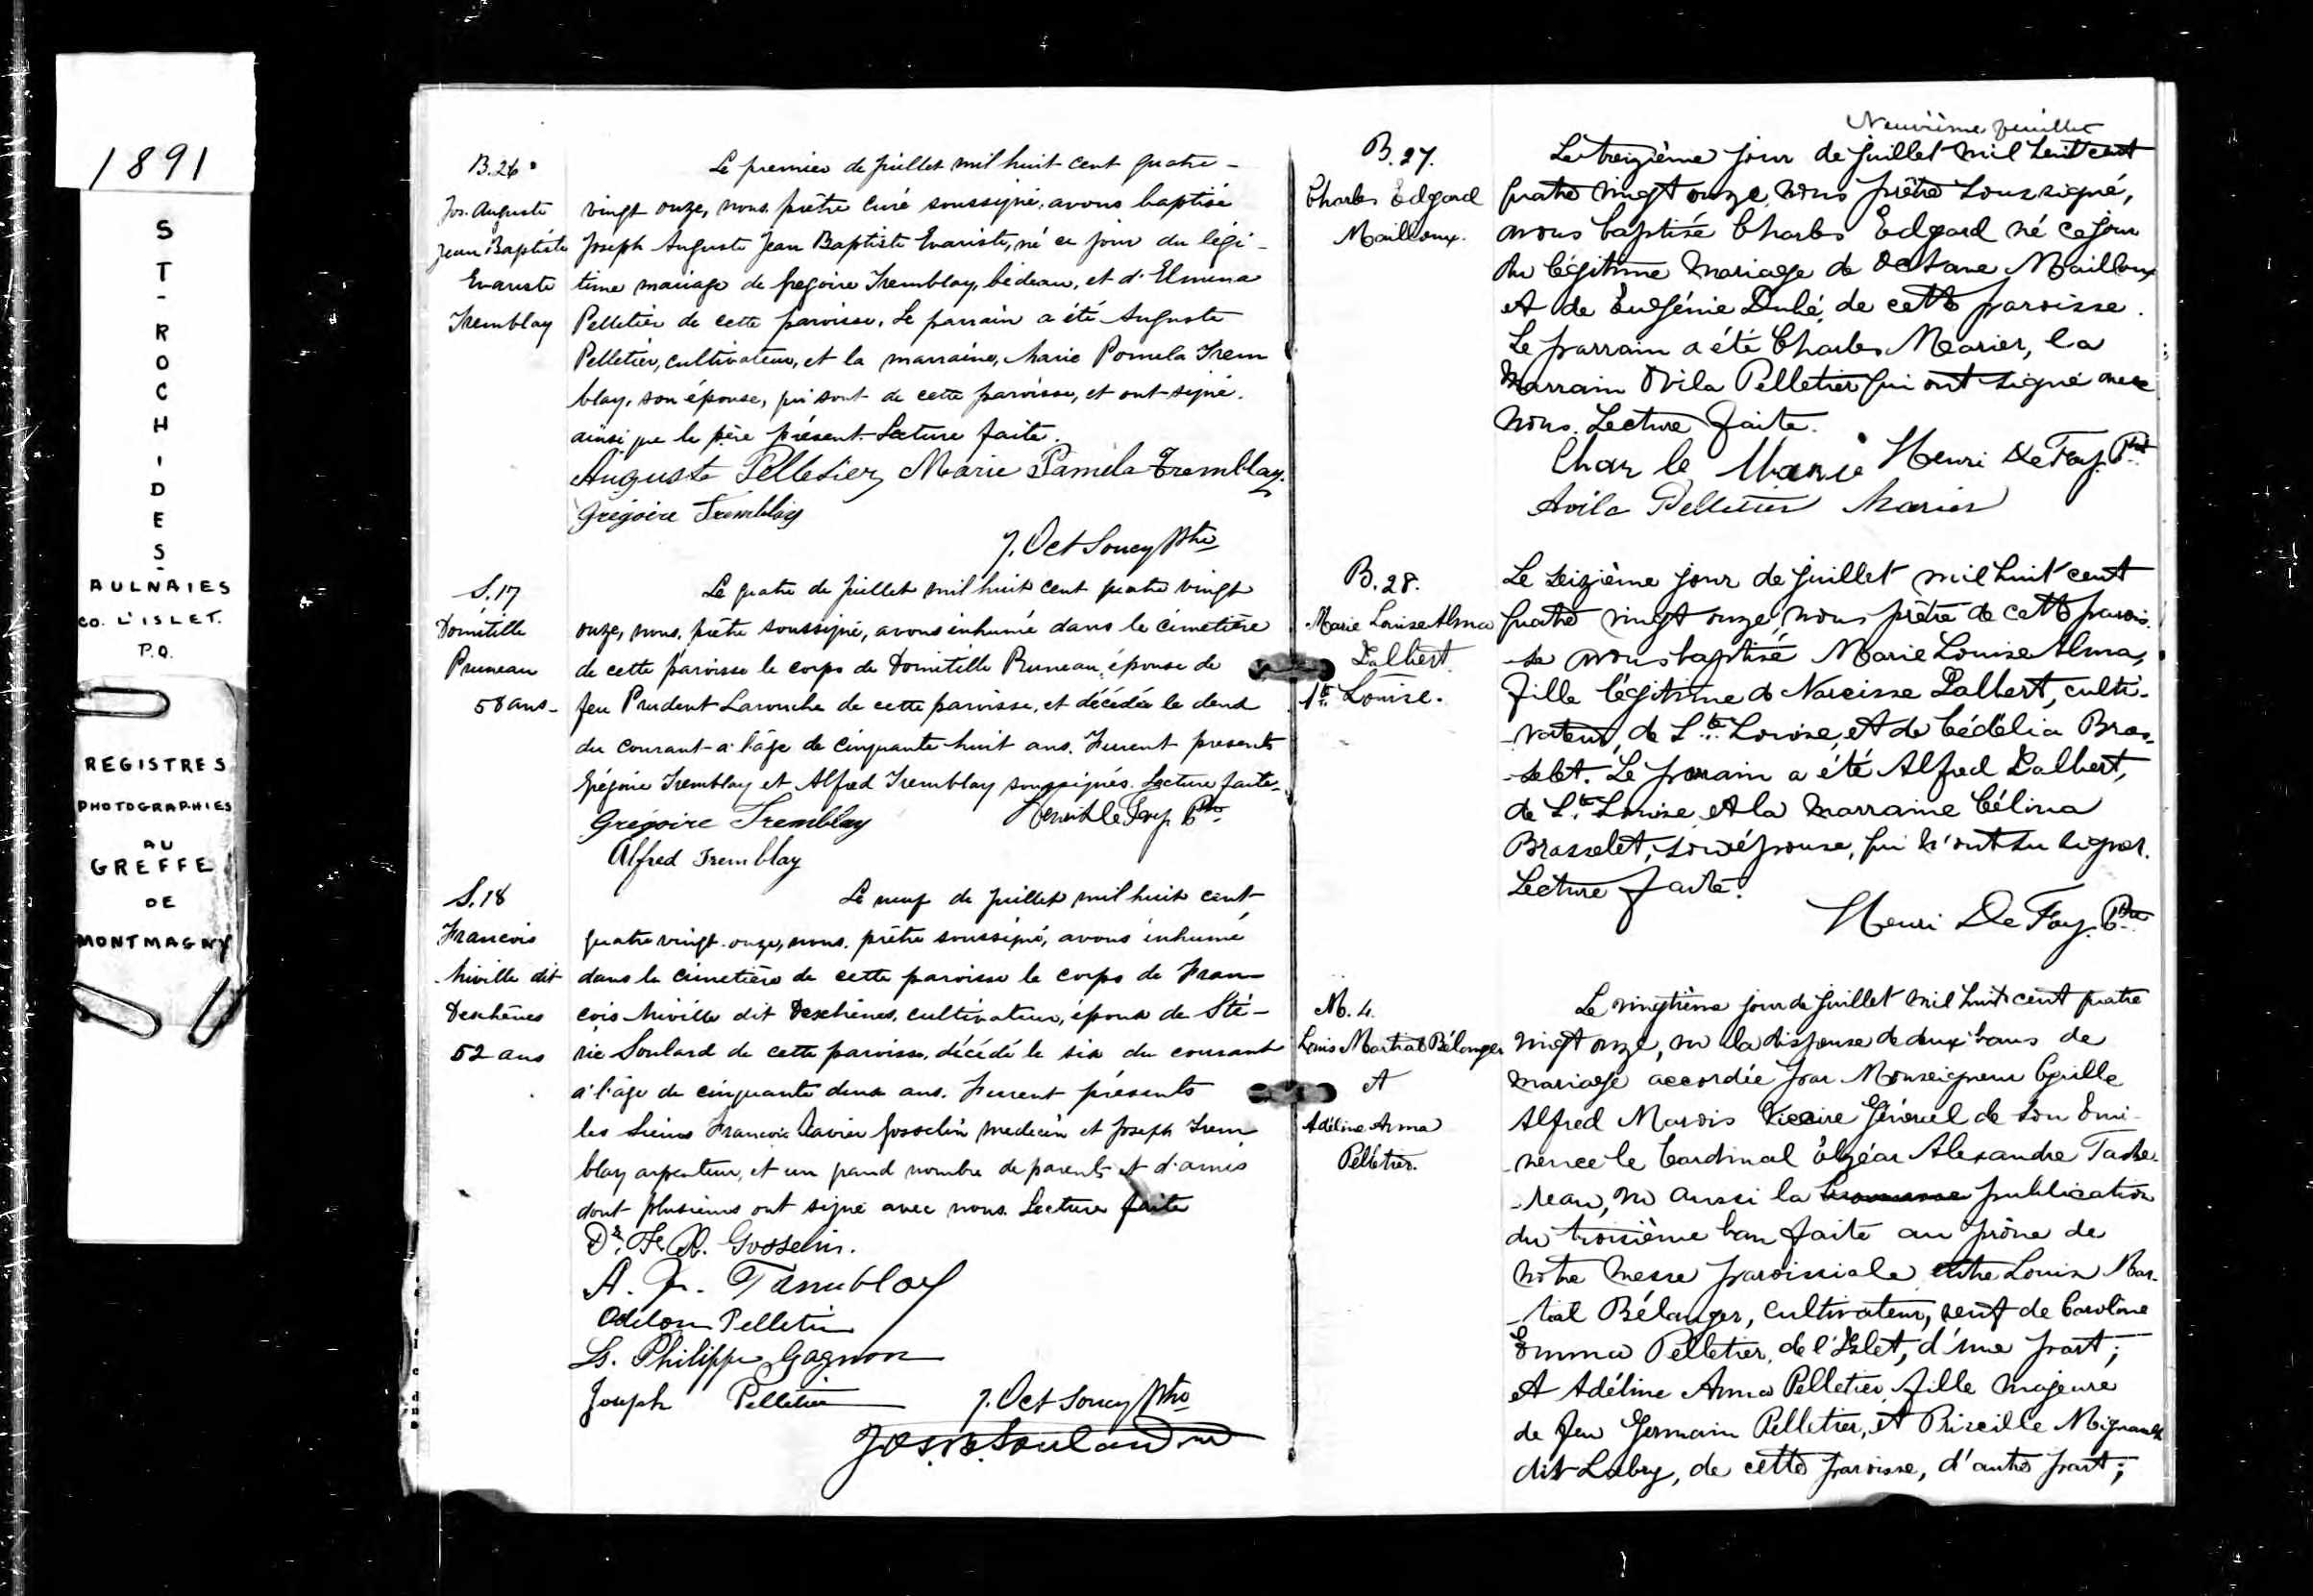 1891
ST-ROCH-DES-
AULNAIES
CO. L'ISLET.
P.Q.
REGISTRES
PHOTOGRAPHIES
AU
GREFFE
DE
MONTMAGNY
B.26
Jos. Auguste
Jean Baptiste
Evariste
Tremblay
Le premier de juillet mil huit cent quatre-
vingt onze, nous, prêtre curé soussigné, avons baptisé
Joseph Auguste Jean Baptiste Evariste, né ce jour du légi-
time mariage de Gregoire Tremblay, bedeau, et d'Elmina
Pelletier de cette paroisse. Le parrain a été Auguste
Pelletier, cultivateur, et la marraine, Marie Pomela Trem
blay, son épouse, qui sont de cette paroisse, et ont signé.
ainsi que le père présent. Lecture faite.
Auguste Pelletier Marie Pamela Tremblay.
Grégoire Tremblay
J. Oct Soucy Ptre
S.17
Domitille
Pruneau
58 ans-
Le quatre de juillet mil huit cent quatre vingt
onze, nous, prêtre soussigné, avons inhumé dans le cimetière
de cette paroisse le corps de Domitille Pruneau, épouse de
feu Prudent Larouche de cette paroisse, et décédée le deux
du courant a l'âge de cinquante huit ans. Furent presents
Grégoire Tremblay et Alfred Tremblay soussignés. Lecture faite.
Grégoire Tremblay
Alfred Tremblay
S.18
Francois
Miville dit
Deschênes
52 ans
Le neuf de juillet mil huit cent
quatre vingt onze, nous, prêtre soussigné, avons inhumé
dans le cimetière de cette paroisse le corps de Fran-
cois Miville dit Deschênes, cultivateur, époux de Sté-
rie Soulard de cette paroisse, décédé le six du courant
a l'âge de cinquante deux ans. Furent présents
les Sieurs Francois Xavier Gosselin medecin et Joseph Trem
blay arpenteur, et un grand nombre de parents et d'amis
dont plusieurs ont signé avec nous. Lecture faite
Dr. F. X. Gosselin.
A. J. Tremblay
Odilon Pelletier
Ls. Philippe Gagnon
Joseph Pelletier
J. Oct Soucy Ptre
Jos. B. Soulard
Neuvième feuillet
B.27.
Charles Edgard
Mailloux.
Le treizième jour de juillet mil huit cent
quatre vingt onze, nous prêtre soussigné,
avons baptisé Charles Edgard né ce jour
du légitime mariage de Octave Mailloux
et de Eugénie Dubé, de cette paroisse.
Le parrain a été Charles Marier, la
marrain Avila Pelletier qui ont signé avec
nous. Lecture faite.
Henri De Foy. Ptre
Avila Pelletier Marier
B.28.
Marie Louise Alma
Dalbert
Ste Louise.
Le seizième jour de juillet mil huit cent
quatre vingt onze, nous prêtre de cette parois-
-se avons baptisé Marie Louise Alma,
fille légitime de Narcisse Dalbert, culti-
-vateur, de Ste Louise, et de Cédélia Bras-
-selet. Le parrain a été Alfred Dalbert,
de Ste Louise et la marraine Célina
Brasselet, son épouse, qui n'ont su signer.
Lecture faite.
Henri De Foy. Ptre
M. 4.
Louis Martial Bélanger
et
Adéline Anna
Pelletier.
Le vingtième jour de juillet mil huit cent quatre
vingt onze, vu la dispense de deux bans de
mariage accordée par Monseigneur Cyrille
Alfred Marois Vicaire Général de Son Emi-
nence le Cardinal Elzéar Alexandre Tasche-
-reau, vu aussi la publication
du troisième ban faite au prône de
notre messe paroissiale entre Louis Mar-
-tial Bélanger, cultivateur, veuf de Caroline
Emma Pelletier, de l'Islet, d'une part;
et Adéline Anna Pelletier, fille majeure
de feu Germain Pelletier, et Priscille Mignault
dit Labry, de cette paroisse, d'autre part;